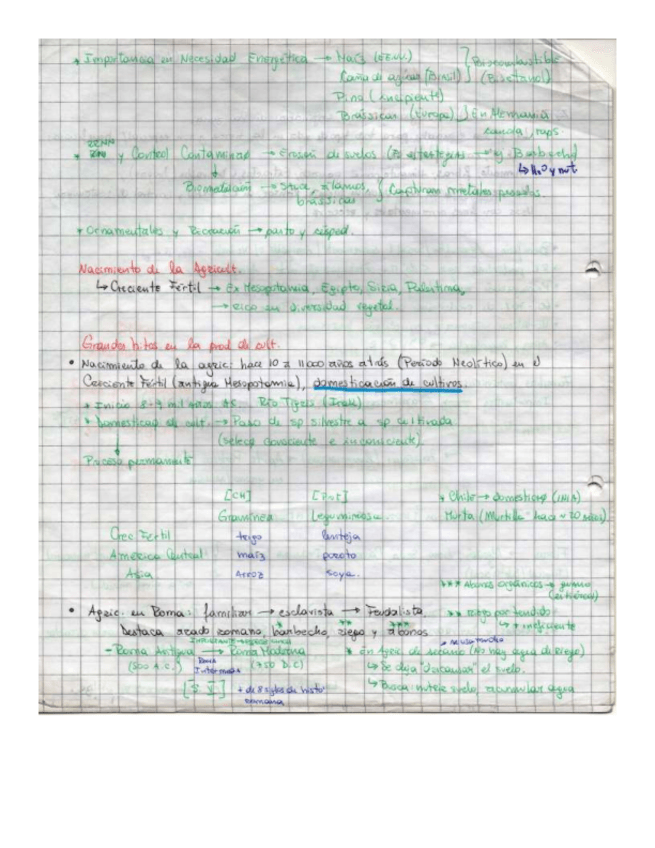 * Importancia en Necesidad Energética → Maíz (EEUU) } Biocombustible
Caña de azúcar (Brasil) } (Bioetanol)
Pino (incipiente)
Brássicas (Europa) } En Alemania
canola, raps.
* RRNN y Control Contaminac → Erosión de suelos ( → ej. Barbecho)
↳ H₂O y nut.
Biorremediación → Sauce, álamos, brássicas { Capturan metales pesados.
* Ornamentales y Recreación → pasto y césped.
Nacimiento de la Agricult.
↳ Creciente Fértil → Ex Mesopotamia, Egipto, Siria, Palestina,
→ rico en diversidad vegetal.
Grandes hitos en la prod de cult.
• Nacimiento de la agric: hace 10 a 11000 años atrás (Período Neolítico) en el
Creciente Fértil (antigua Mesopotamia), domesticación de cultivos.
* Inicio 8-9 mil años AC Río Tigris (Irak)
* Domesticac de cult. → Paso de sp silvestre a sp cultivada
(selecc consciente e inconsciente).
Proceso permanente
[CH] [Prot] * Chile → domesticac (INIA)
Gramínea Leguminosa. Murta (Murtilla hace ~20 años)
Crec Fértil trigo lenteja
América Central maíz poroto
Asia Arroz soya.
*** Abonos orgánicos → guano
(estiércol)
• Agric. en Roma: familiar → esclavista → Feudalista. ** riego por tendido
↳ + ineficiente
Destaca arado romano, barbecho, riego y abonos
- Roma Antigua → Roma Moderna * en Agric. de secano (No hay agua de Riego)
(500 A.C.) Roma Intermedia (+50 D.C) ↳ Se deja "descansar" el suelo.
+ de 8 siglos de histo ↳ Busca nutrir suelo, acumular agua
romana